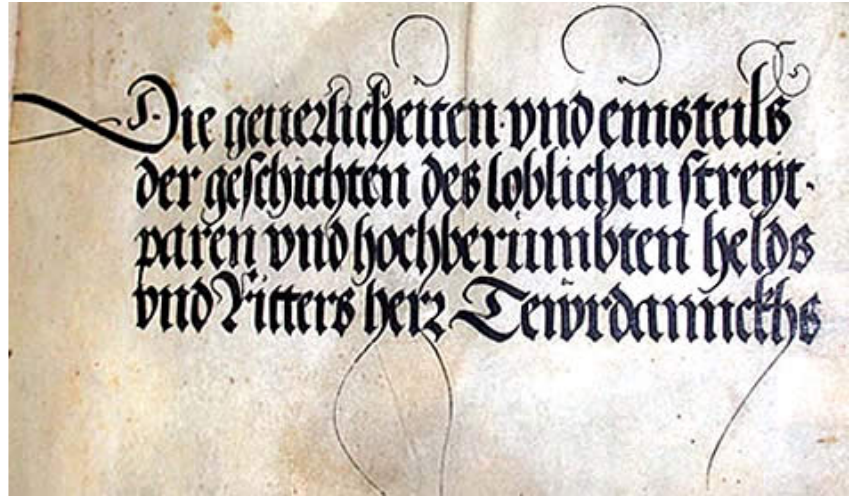 Die geuerlicheiten vnd einsteils
der geschichten des loblichen streyt⸗
paren vnd hochberümbten helds
vnd Ritters herr Tewrdannckhs